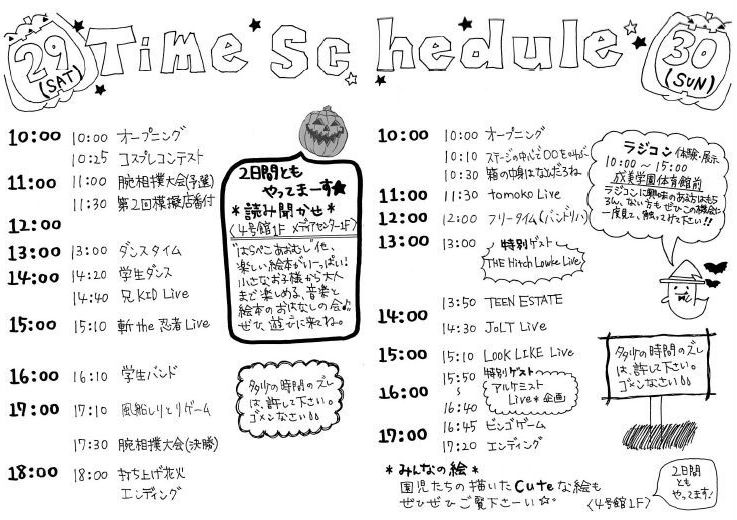 Time Schedule
29
(SAT)
10:00
10:00 オープニング
10:25 コスプレコンテスト
11:00
11:00 腕相撲大会(予選)
11:30 第2回模擬店番付
12:00
13:00
13:00 ダンスタイム
14:00
14:20 学生ダンス
14:40 兄KID Live
15:00
15:10 斬the忍者Live
16:00
16:10 学生バンド
17:00
17:10 風船しりとりゲーム
17:30 腕相撲大会(決勝)
18:00
18:00 打ち上げ花火
エンディング
2日間とも
やってまーす★
*読み聞かせ*
〈4号館1F メディアセンター1F〉
"はらぺこあおむし"他、
楽しい絵本がいーっぱい!
小さなお子様から大人
まで楽しめる、音楽と
絵本のおはなしの会♪
ぜひ、遊びに来てね。
多少の時間のズレ
は、許して下さい。
ゴメンなさい
30
(SUN)
10:00
10:00 オープニング
10:10 ステージの中心で〇〇を叫ぶ
10:30 箱の中身はなんだろね
11:00
11:30 tomoko Live
12:00
12:00 フリータイム(バンドリハ)
13:00
13:00 特別ゲスト
THE Hitch Lowke Live
13:50 TEEN ESTATE
14:00
14:30 JoLT Live
15:00
15:10 LOOK LIKE Live
15:50 特別ゲスト
~ アルケミスト
16:00
16:40 Live*企画
16:45 ビンゴゲーム
17:00
17:20 エンディング
*みんなの絵*
園児たちの描いたCuteな絵も
ぜひぜひご覧下さーい☆。
〈4号館1F〉
2日間
とも
やってます!
ラジコン 体験・展示
10:00 ~ 15:00
成美学園体育館前
ラジコンに興味のある方はもち
ろん、ない方もぜひこの機会に
一度見て、触ってみて下さい!!
多少の時間のズレ
は、許して下さい。
ゴメンなさい